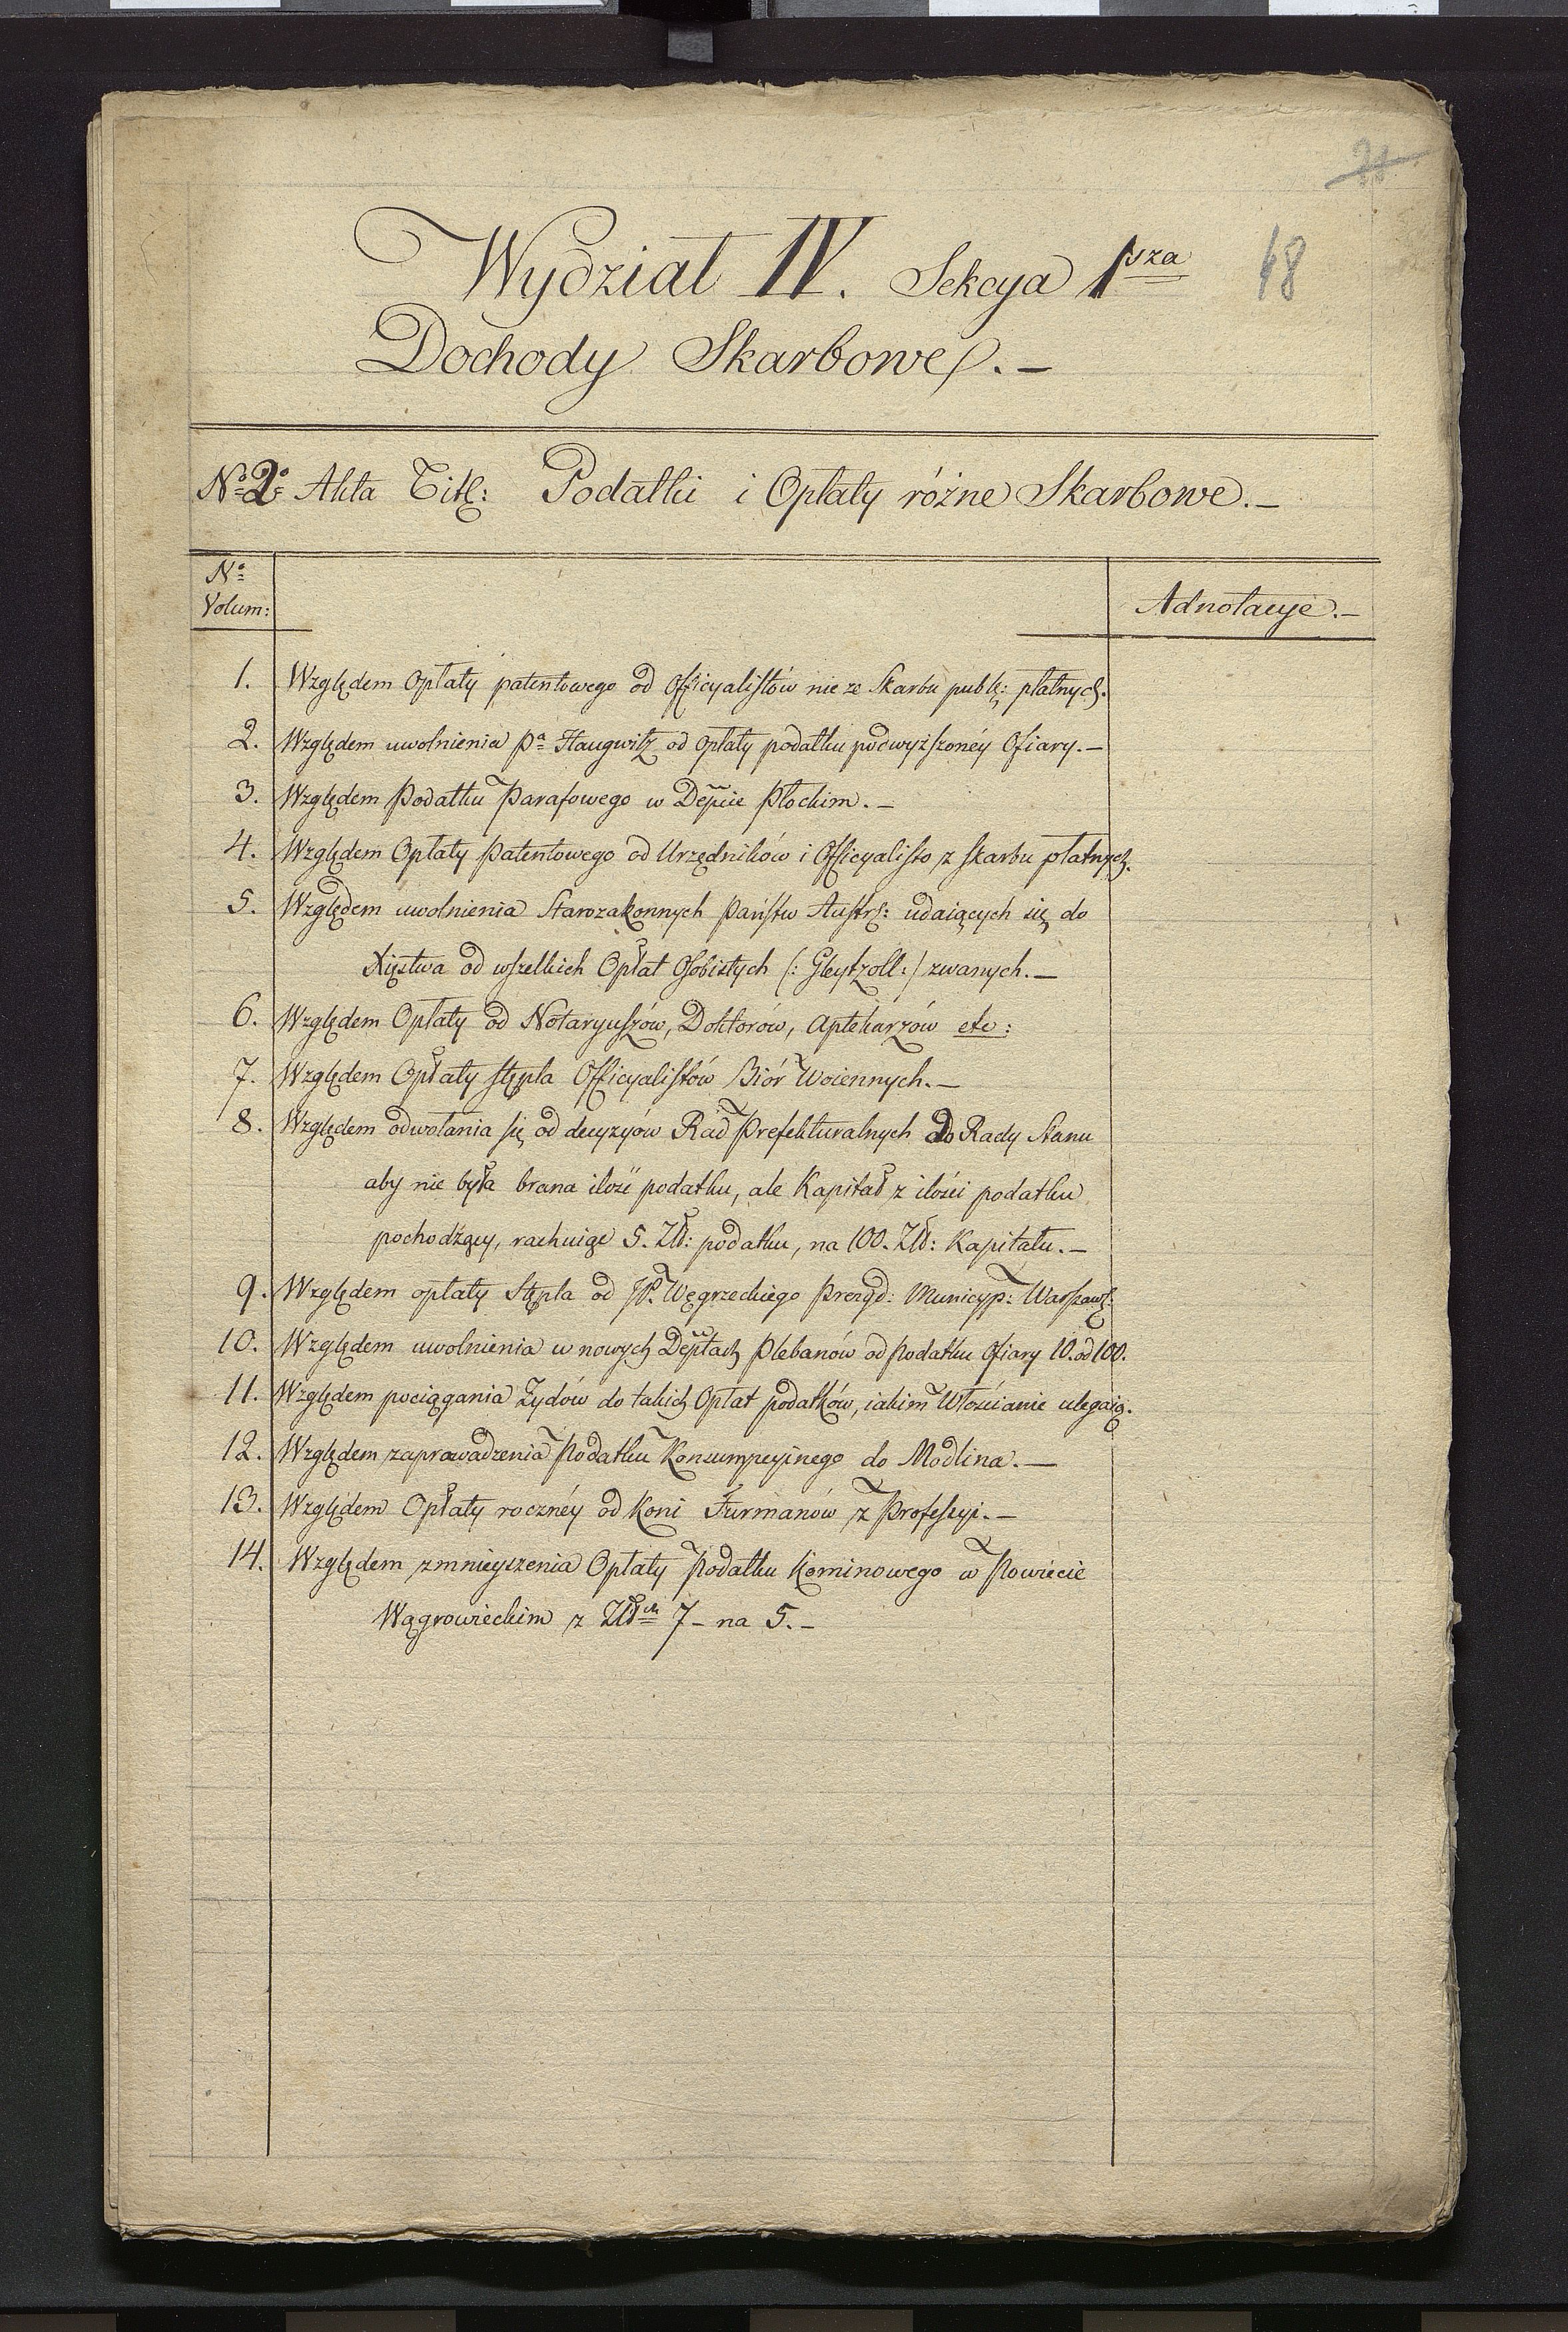 Wydział IV. Sekcya 1sza
48
Dochody Skarbowe.–
No 2o Akta Titl: Podatki i Opłaty różne Skarbowe.–
No
Volum:
Adnotacyje.–
1. Względem Opłaty patentowego od Officyalistów nie ze Skarbu publ: płatnych.
2. Względem uwolnienia Pa Haugwitz od opłaty podatku podwyższonéy Ofiary.–
3. Względem Podatku Parafowego w Depcie Płockim.–
4. Względem Opłaty Patentowego od Urzędników i Officyalisto z skarbu płatnych.
5. Względem uwolnienia Starozakonnych Państw Austr: udaiących się do
Xięstwa od wszelkich Opłat Osobistych (: Gleytzoll :) zwanych.–
6. Względem Opłaty od Notaryuszów, Doktorów, Aptekarzów etc:
7. Względem Opłaty stępla Officyalistów Biór Woiennych.–
8. Względem odwołania się od decyzyów Rad Prefekturalnych do Rady Stanu
aby nie była brana ilość podatku, ale Kapitał z ilości podatku
pochodzący, rachuiąc 5. Zł: podatku, na 100. Zł: Kapitału.–
9. Względem opłaty Stępla od JP. Węgrzeckiego Prezyd: Municyp: Warszaws:
10. Względem uwolnienia w nowych Deptach Plebanów od Podatku Ofiary 10. od 100.
11. Względem pociągania Żydów do takich Opłat podatków, iakim Włościanie ulegaią.
12. Względem zaprowadzenia Podatku Konsumpcyjnego do Modlina.–
13. Względem Opłaty rocznéy od Koni Furmanów z Professyi.–
14. Względem zmnieyszenia Opłaty Podatku Kominowego w Powiecie
Wągrowieckim z Złch 7– na 5.–